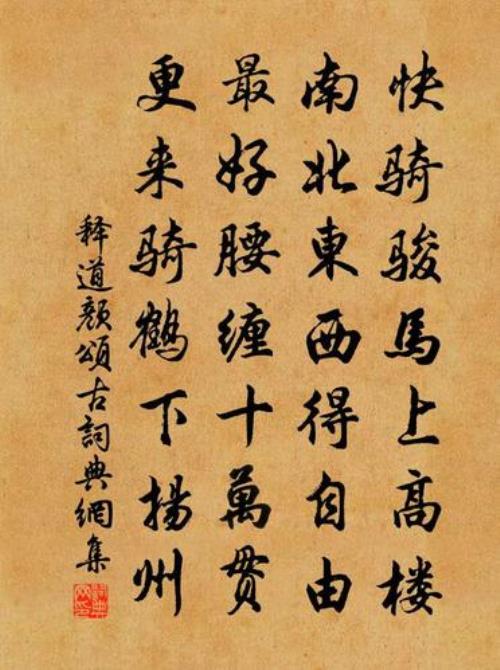 快骑骏馬上高楼
南北東西得自由
最好腰缠十萬贯
更来骑鶴下揚州
释道颜頌古詞典網集